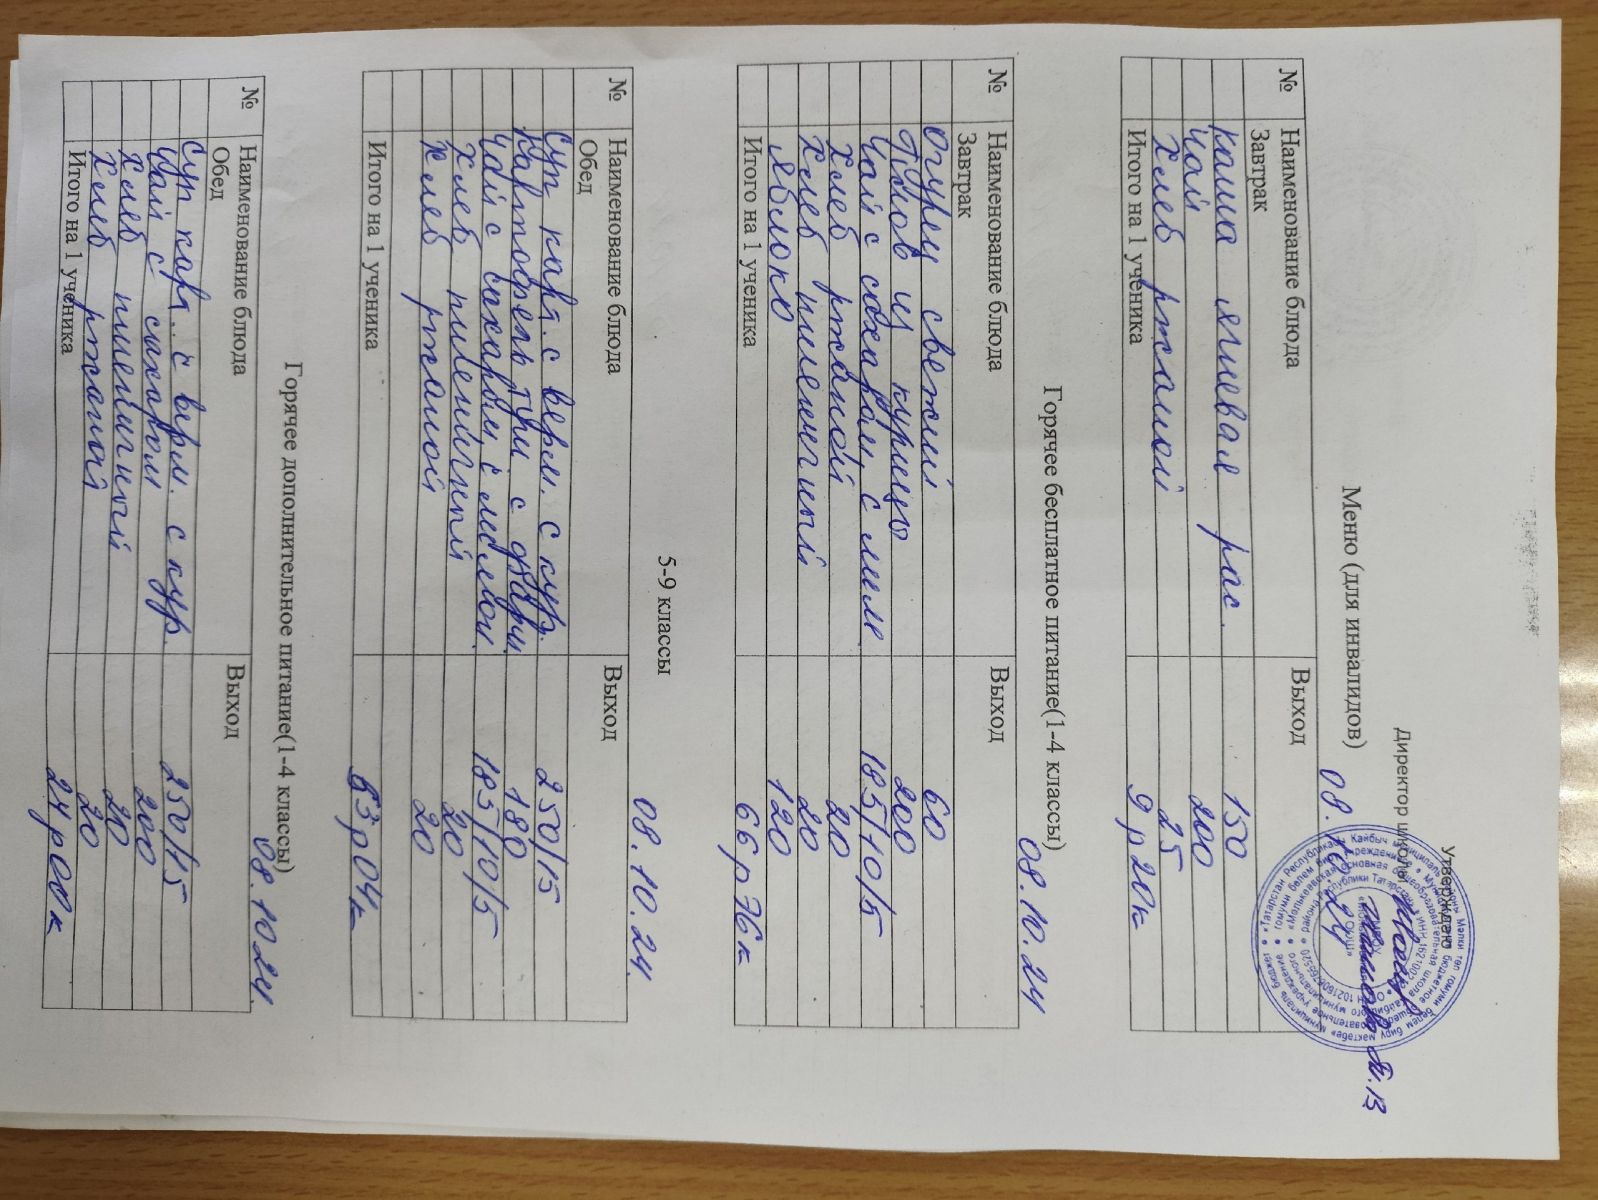 Утверждаю
Директор школы
Меню (для инвалидов)
08.10.24
№ Наименование блюда Выход
Завтрак
каша ячневая рас. 150
чай 200
хлеб ржаной 25
Итого на 1 ученика 9р 20к
Горячее бесплатное питание(1-4 классы)
08.10.24
№ Наименование блюда Выход
Завтрак
огурец свежий 60
Плов из курицы 200
Чай с сахаром, с лим. 185/10/5
Хлеб ржаной 20
Хлеб пшеничный 20
яблоко 120
Итого на 1 ученика 66р 76к
5-9 классы
08.10.24.
№ Наименование блюда Выход
Обед
Суп карт. с верм. с кур. 250/15
Картофель туш с 180
Чай с сахаром с лимон. 185/10/5
Хлеб пшеничный 20
Хлеб ржаной 20
Итого на 1 ученика 63р04к
Горячее дополнительное питание(1-4 классы)
08.10 24
№ Наименование блюда Выход
Обед
Суп карт. с верм. с кур. 250/15
Чай с сахаром 200
Хлеб пшеничный 20
Хлеб ржаной 20
Итого на 1 ученика 24р00к